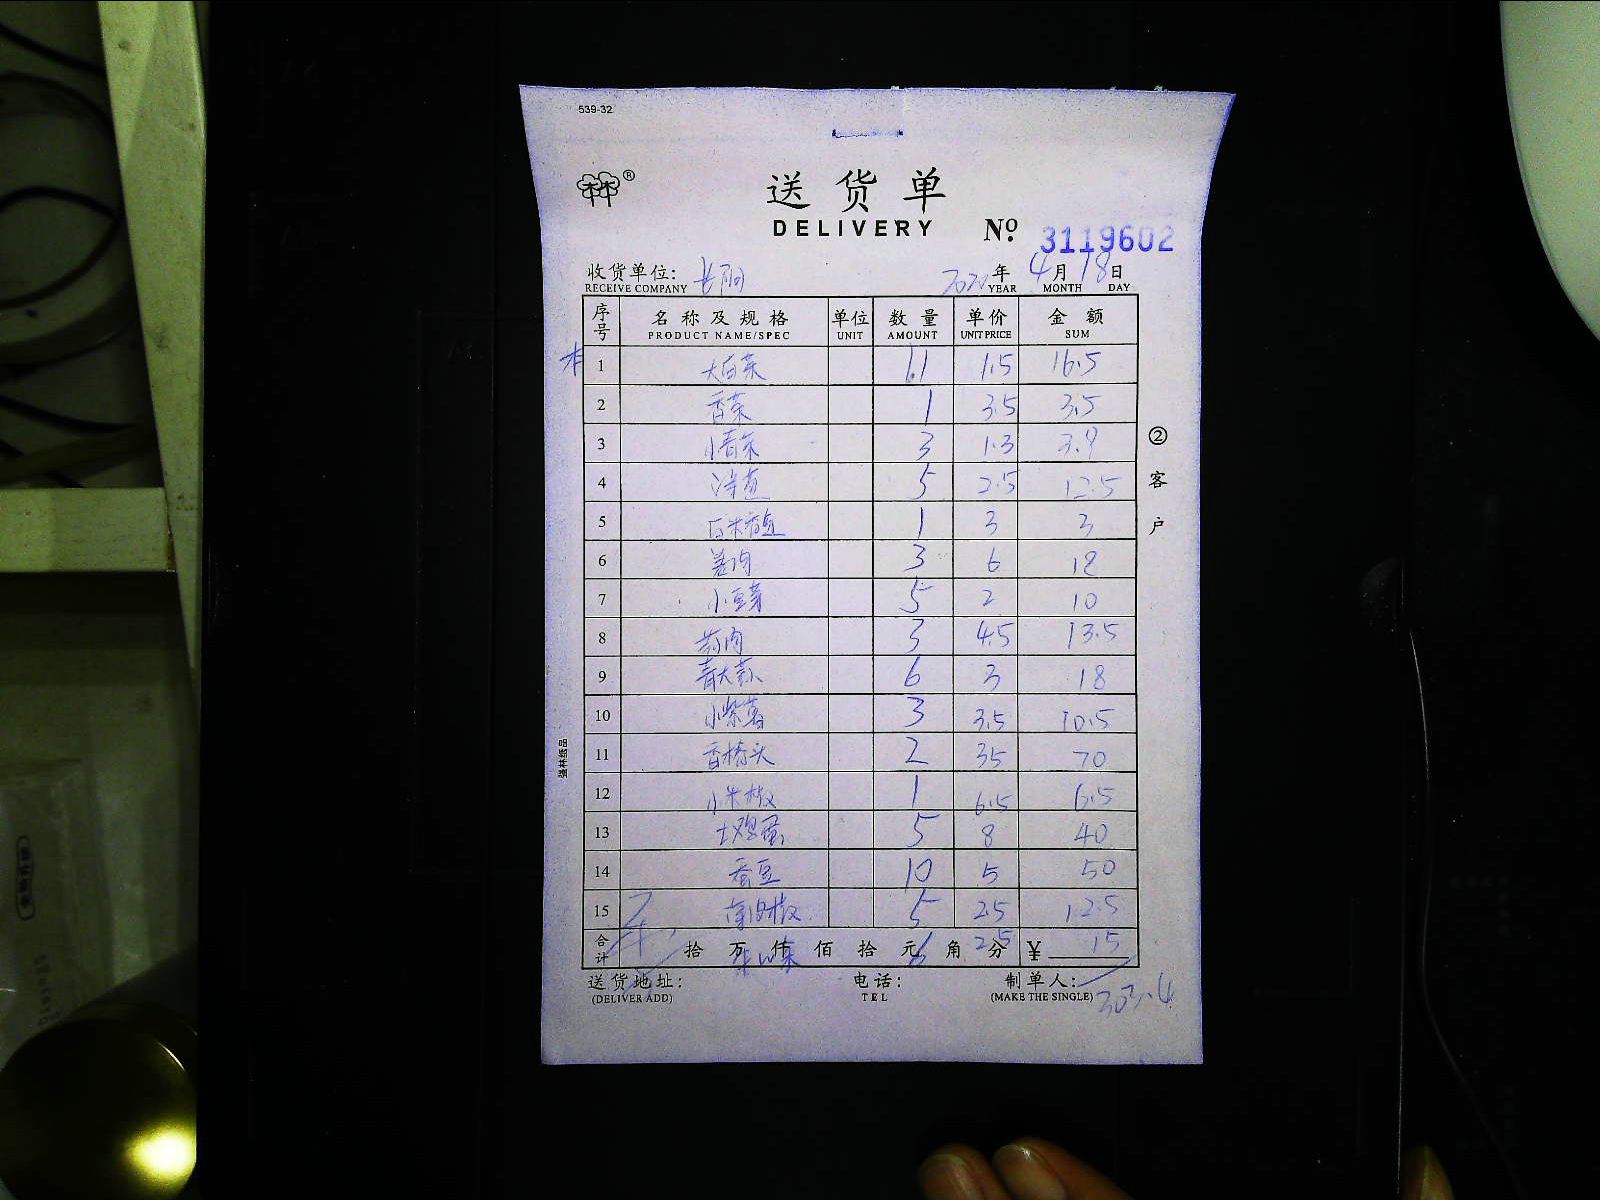 539-32
林林®
送货单
DELIVERY № 3119602
收货单位: 2020年4月18日
RECEIVE COMPANY YEAR MONTH DAY
序号 名称及规格 单位 数量 单价 金额
PRODUCT NAME/SPEC UNIT AMOUNT UNIT PRICE SUM
1 大白菜 11 1.5 16.5
2 香菜 1 3.5 3.5
3 小青菜 3 1.3 3.9
4 5 2.5 12.5
5 1 3 3
6 姜肉 3 6 18
7 小豆芽 5 2 10
8 蒜肉 3 4.5 13.5
9 青大蒜 6 3 18
10 小紫薯 3 3.5 10.5
11 香椿头 2 35 70
12 小米椒 1 6.5 6.5
13 土鸡蛋 5 8 40
14 蚕豆 10 5 50
15 5 2.5 12.5
合计 拾 万 仟 佰 拾 元 角 分 ¥ 15
6 2.5
送货地址: 电话: 制单人:
(DELIVER ADD) TEL (MAKE THE SINGLE) 303.4
②客户
强林纸品